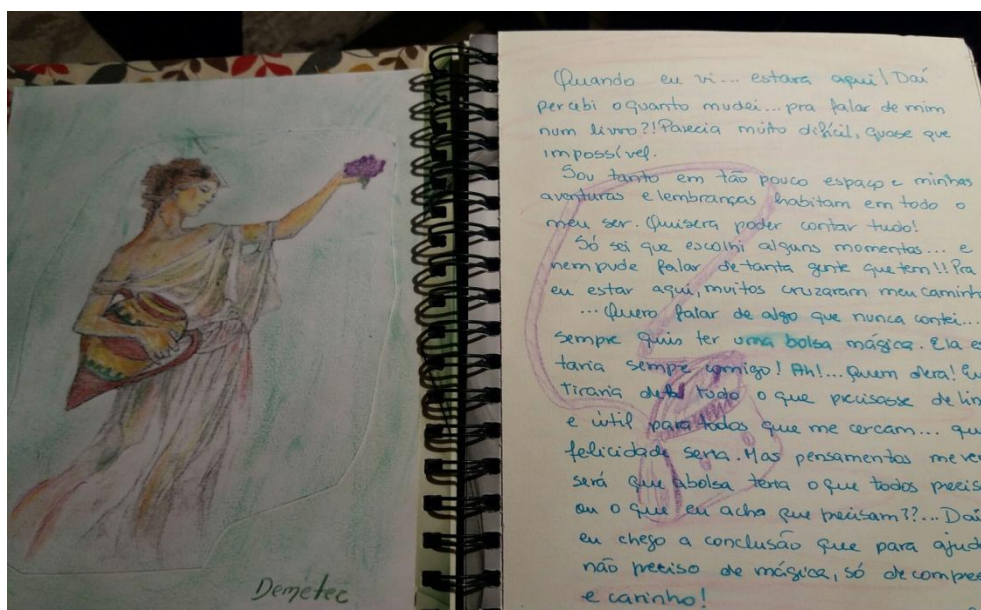 Demétec
Quando eu vi... estava aqui! Daí
percebi o quanto mudei... pra falar de mim
num livro?! Parecia muito difícil, quase que
impossível.
Sou tanto em tão pouco espaço e minhas
aventuras e lembranças habitam em todo o
meu ser. Quisera poder contar tudo!
Só sei que escolhi alguns momentos... e
nem pude falar de tanta gente que tem!! Pra
eu estar aqui, muitos cruzaram meu caminh
... Quero falar de algo que nunca contei...
sempre quis ter uma bolsa mágica. Ela es
taria sempre comigo! Ah!... Quem dera! Eu
tiraria dela tudo o que precisasse de lin
e útil para todos que me cercam... qu
felicidade seria. Mas pensamentos me ve
será que a bolsa teria o que todos precis
ou o que eu acho que precisam??... Daí
eu chego a conclusão que para ajud
não preciso de mágica, só de compre
e carinho!